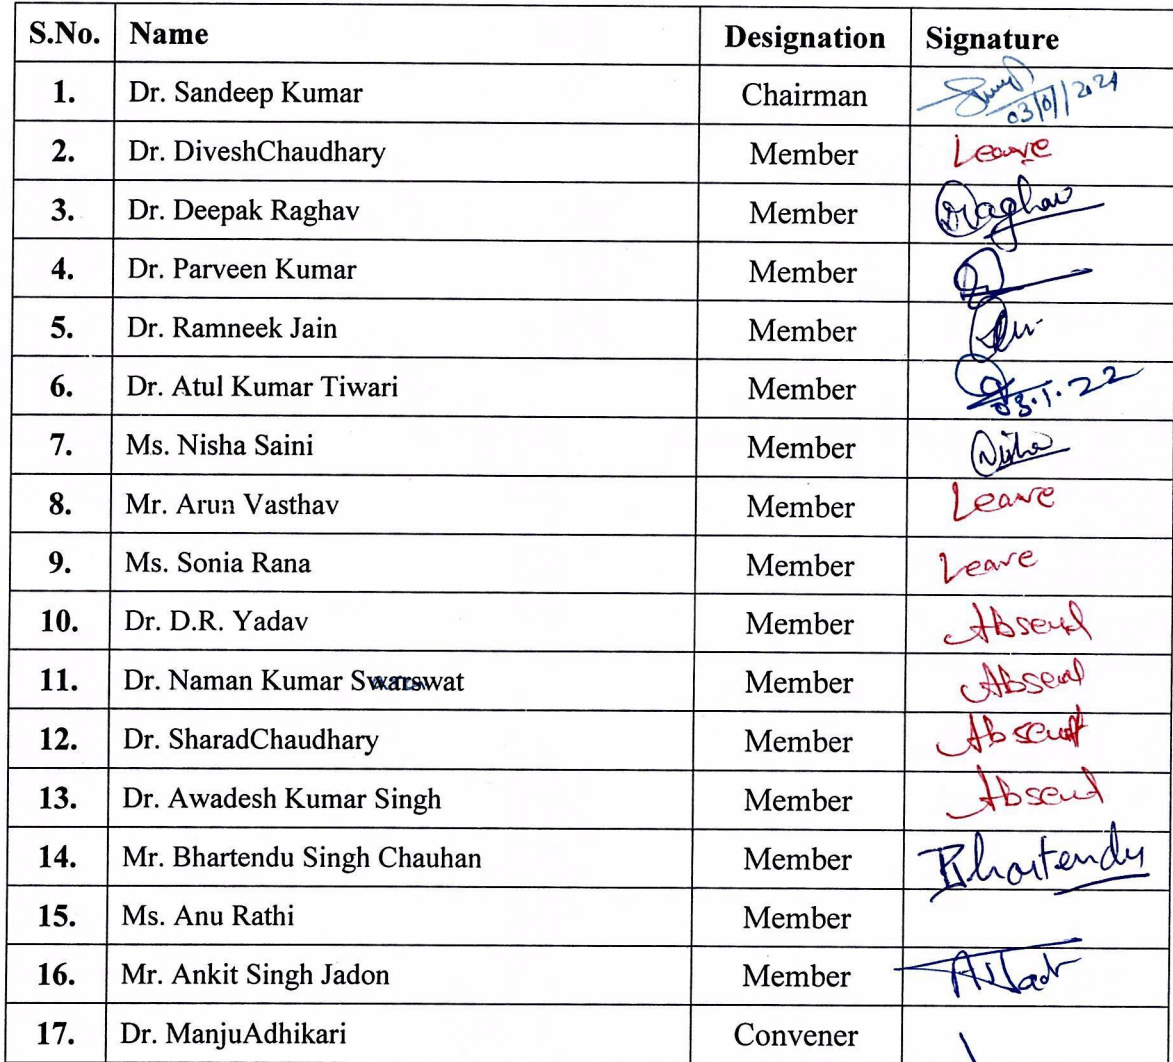 S.No. Name Designation Signature
1. Dr. Sandeep Kumar Chairman 03/01/2021
2. Dr. DiveshChaudhary Member Leave
3. Dr. Deepak Raghav Member Raghav
4. Dr. Parveen Kumar Member
5. Dr. Ramneek Jain Member
6. Dr. Atul Kumar Tiwari Member 03.1.22
7. Ms. Nisha Saini Member Nisha
8. Mr. Arun Vasthav Member Leave
9. Ms. Sonia Rana Member Leave
10. Dr. D.R. Yadav Member Absent
11. Dr. Naman Kumar Swarswat Member Absent
12. Dr. SharadChaudhary Member Absent
13. Dr. Awadesh Kumar Singh Member Absent
14. Mr. Bhartendu Singh Chauhan Member Bhartendu
15. Ms. Anu Rathi Member
16. Mr. Ankit Singh Jadon Member
17. Dr. ManjuAdhikari Convener